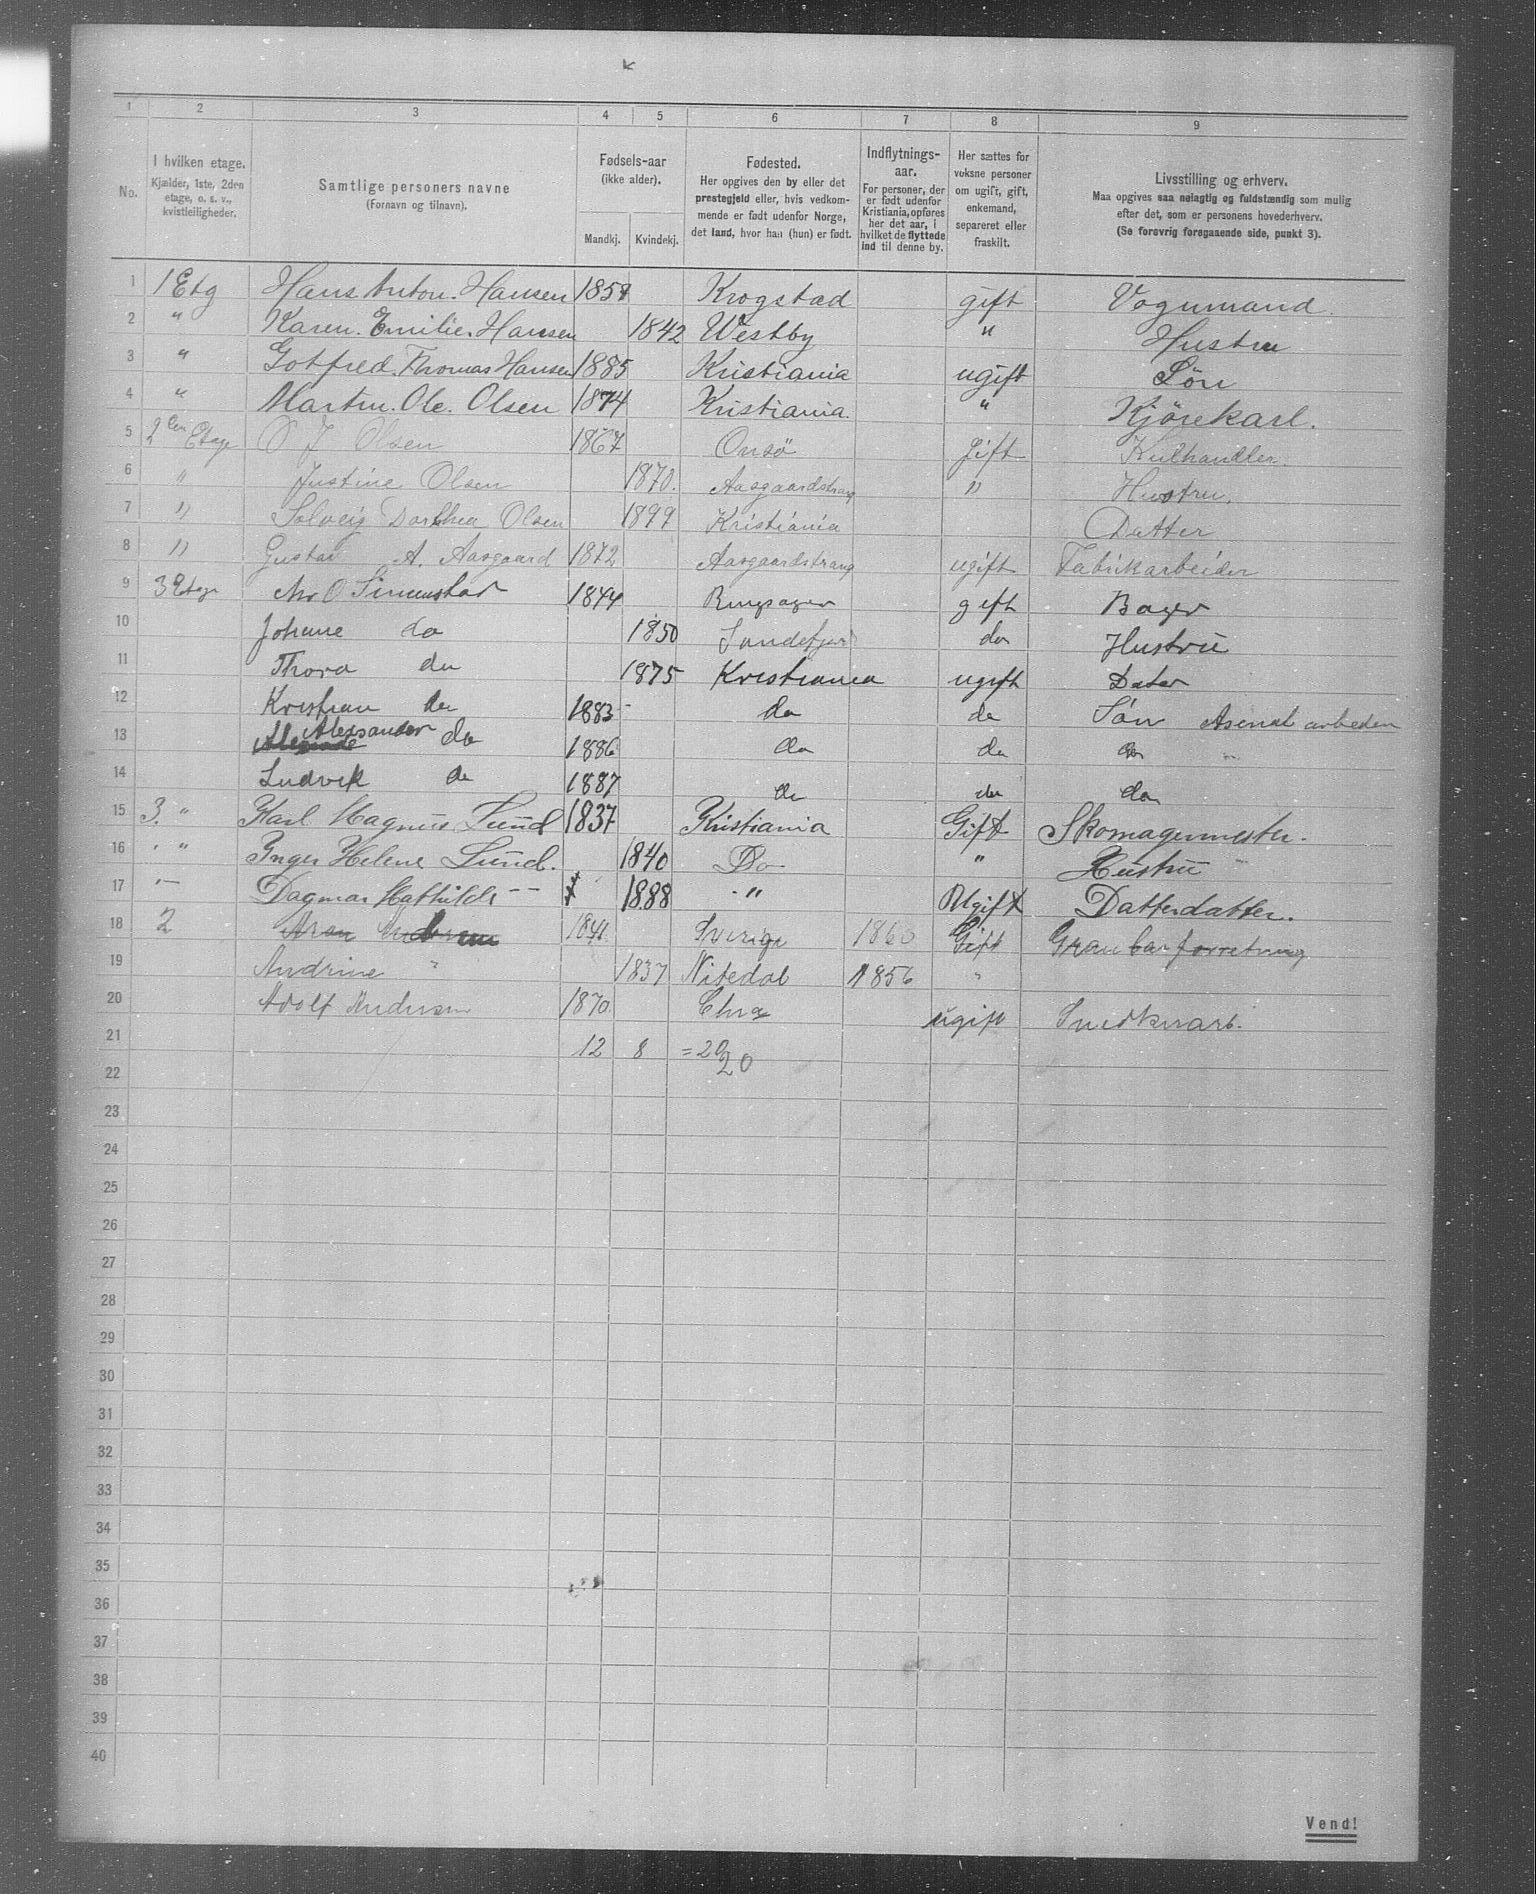 1 2 3 4 5 6 7 8 9
No.
I hvilken etage.
Kjælder, 1ste, 2den
etage, o. s. v.,
kvistleiligheder.
Samtlige personers navne
(Fornavn og tilnavn).
Fødsels-aar
(ikke alder).
Mandkj. Kvindekj.
Fødested.
Her opgives den by eller det
prestegjeld eller, hvis vedkom-
mende er født udenfor Norge,
det land, hvor han (hun) er født.
Indflytnings-
aar.
For personer, der
er født udenfor
Kristiania, opføres
her det aar, i
hvilket de flyttede
ind til denne by.
Her sættes for
voksne personer
om ugift, gift,
enkemand,
separeret eller
fraskilt.
Livsstilling og erhverv.
Maa opgives saa nøiagtig og fuldstændig som mulig
efter det, som er personens hovederhverv.
(Se forøvrig foregaaende side, punkt 3).
1 1 Etg Hans Anton. Hansen 1857 Krogstad gift Vognmand.
2 " Karen. Emilie. Hansen 1842 Westby " Hustru
3 " Gotfred. Thomas Hansen 1885 Kristiania ugift Sön
4 " Martin. Ole. Olsen 1874 Kristiania. " Kjörekarl.
5 2den Etage O J Olsen 1867 Onsö gift Kulhandler.
6 " Justine Olsen 1870. Aasgaardstrang " Hustru.
7 " Solveig Dorthea Olsen 1899 Kristiania Datter
8 " Gustav A. Aasgaard 1872 Aasgaardstrang ugift Fabrikarbeider
9 3 Etage O Simenstad 1844 Ringsager gift Bager
10 Johane do 1850 Sandefjord do Hustru
11 Thora do 1875 Kristiania ugift Dater
12 Kristian do 1883 do do Sön Asenal arbeder
13 Alexsander do 1886 do do do "
14 Ludvik do 1887 do do do
15 3. " Karl Magnus Lund 1837 Kristiania Gift Skomagermester.
16 " " Inger Helene Lund. 1840 Do " Hustru
17 " Dagmar Mathilde - - 1888 - " Ugift Datterdatter.
18 2 Aron Andersen 1841 Sverige 1860 Gift Granbarforretning
19 Andrine " 1837 Nitedal 1856 "
20 Adolf Andersen 1870 Chra ugift Snedkerarb.
21 12 8 = 20
22 20
23
24
25
26
27
28
29
30
31
32
33
34
35
36
37
38
39
40
Vend!